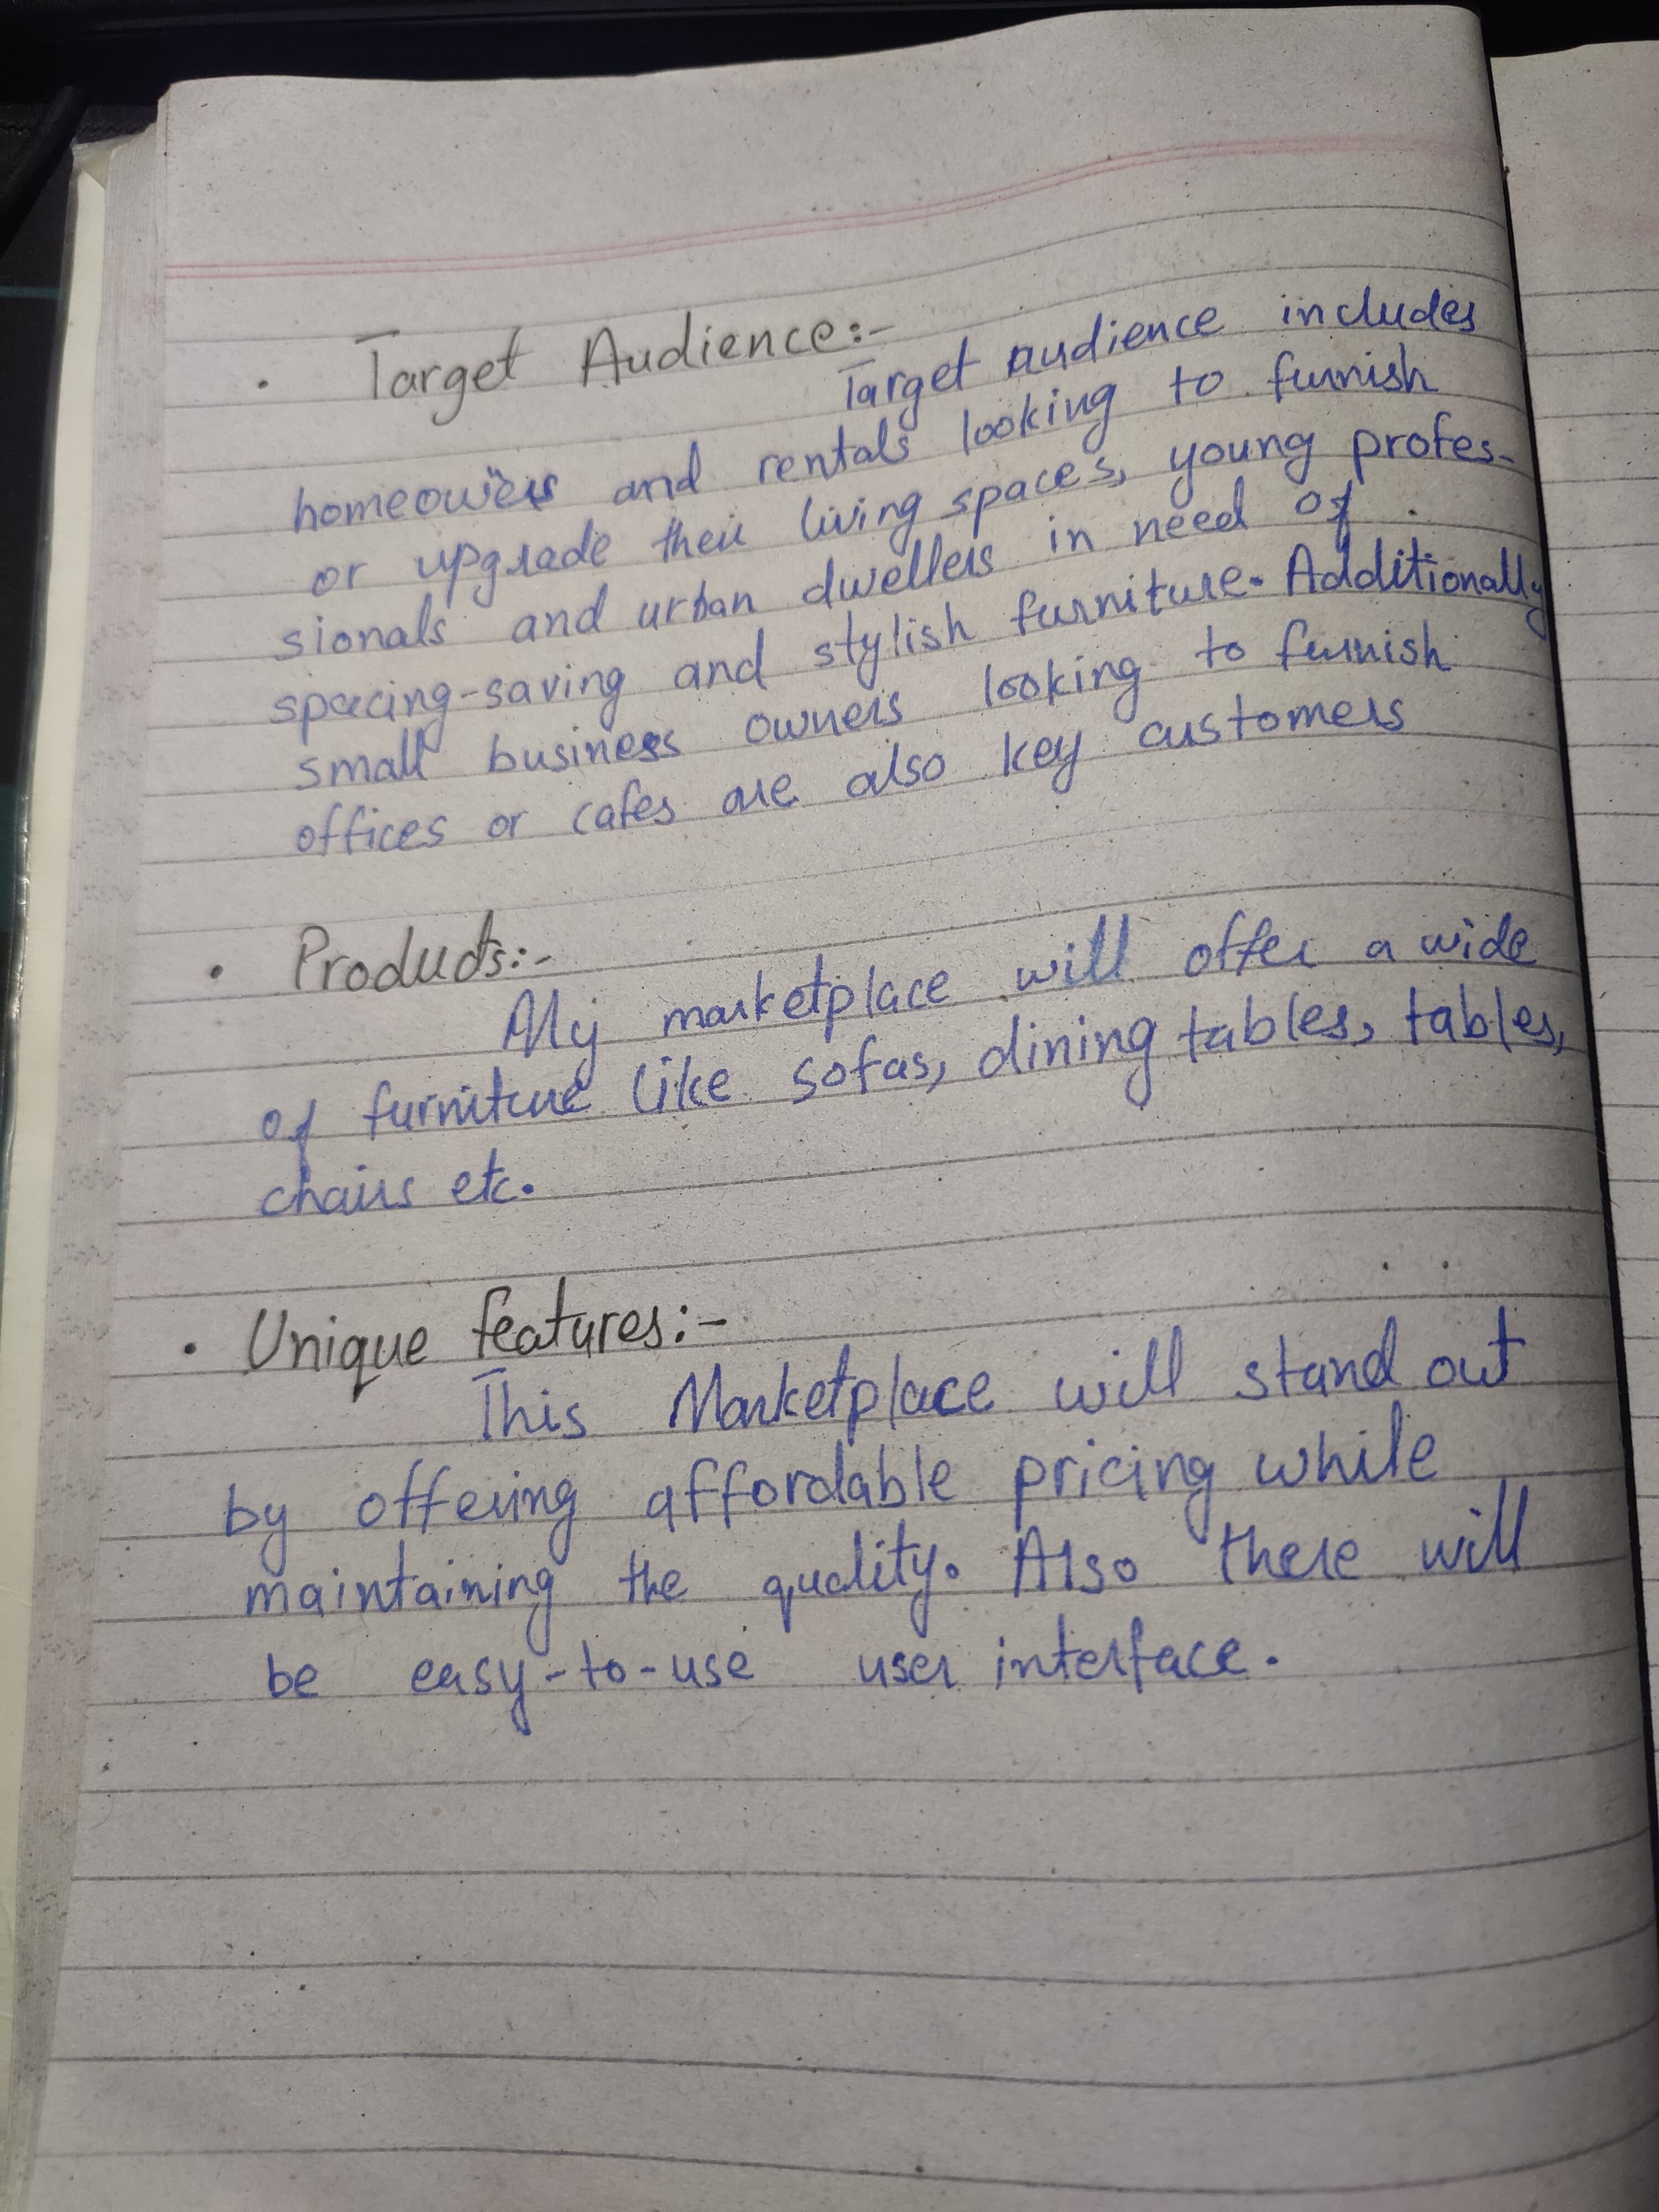 • Target Audience:-
Target audience includes
homeowners and rentals looking to furnish
or upgrade their living spaces, young profes-
sionals and urban dwellers in need of
spacing-saving and stylish furniture. Additionally
small business owners looking to furnish
offices or cafes are also key customers
• Products:-
My marketplace will offer a wide
of furniture like sofas, dining tables, tables,
chairs etc.
• Unique features:-
This Marketplace will stand out
by offering affordable pricing while
maintaining the quality. Also there will
be easy-to-use user interface.